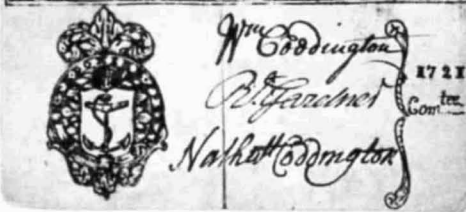 Wm Coddington
Rd Gardner
Nathall Coddington
1721
Comtee